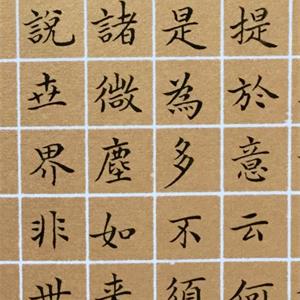 提於意云何
是為多不須
諸微塵如来
說世界非世